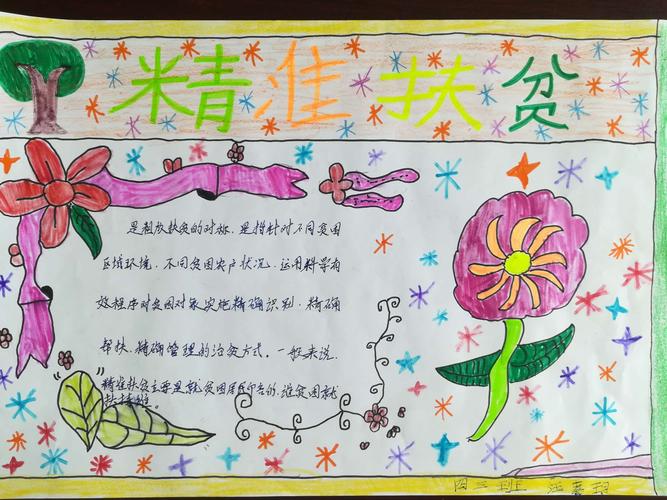 精准扶贫
是粗放扶贫的对称，是指针对不同贫困
区域环境、不同贫困农户状况，运用科学有
效程序对贫困对象实施精确识别、精确
帮扶、精确管理的治贫方式。一般来说，
精准扶贫主要是就贫困居民而言的，谁贫困就
扶持谁。
四三班